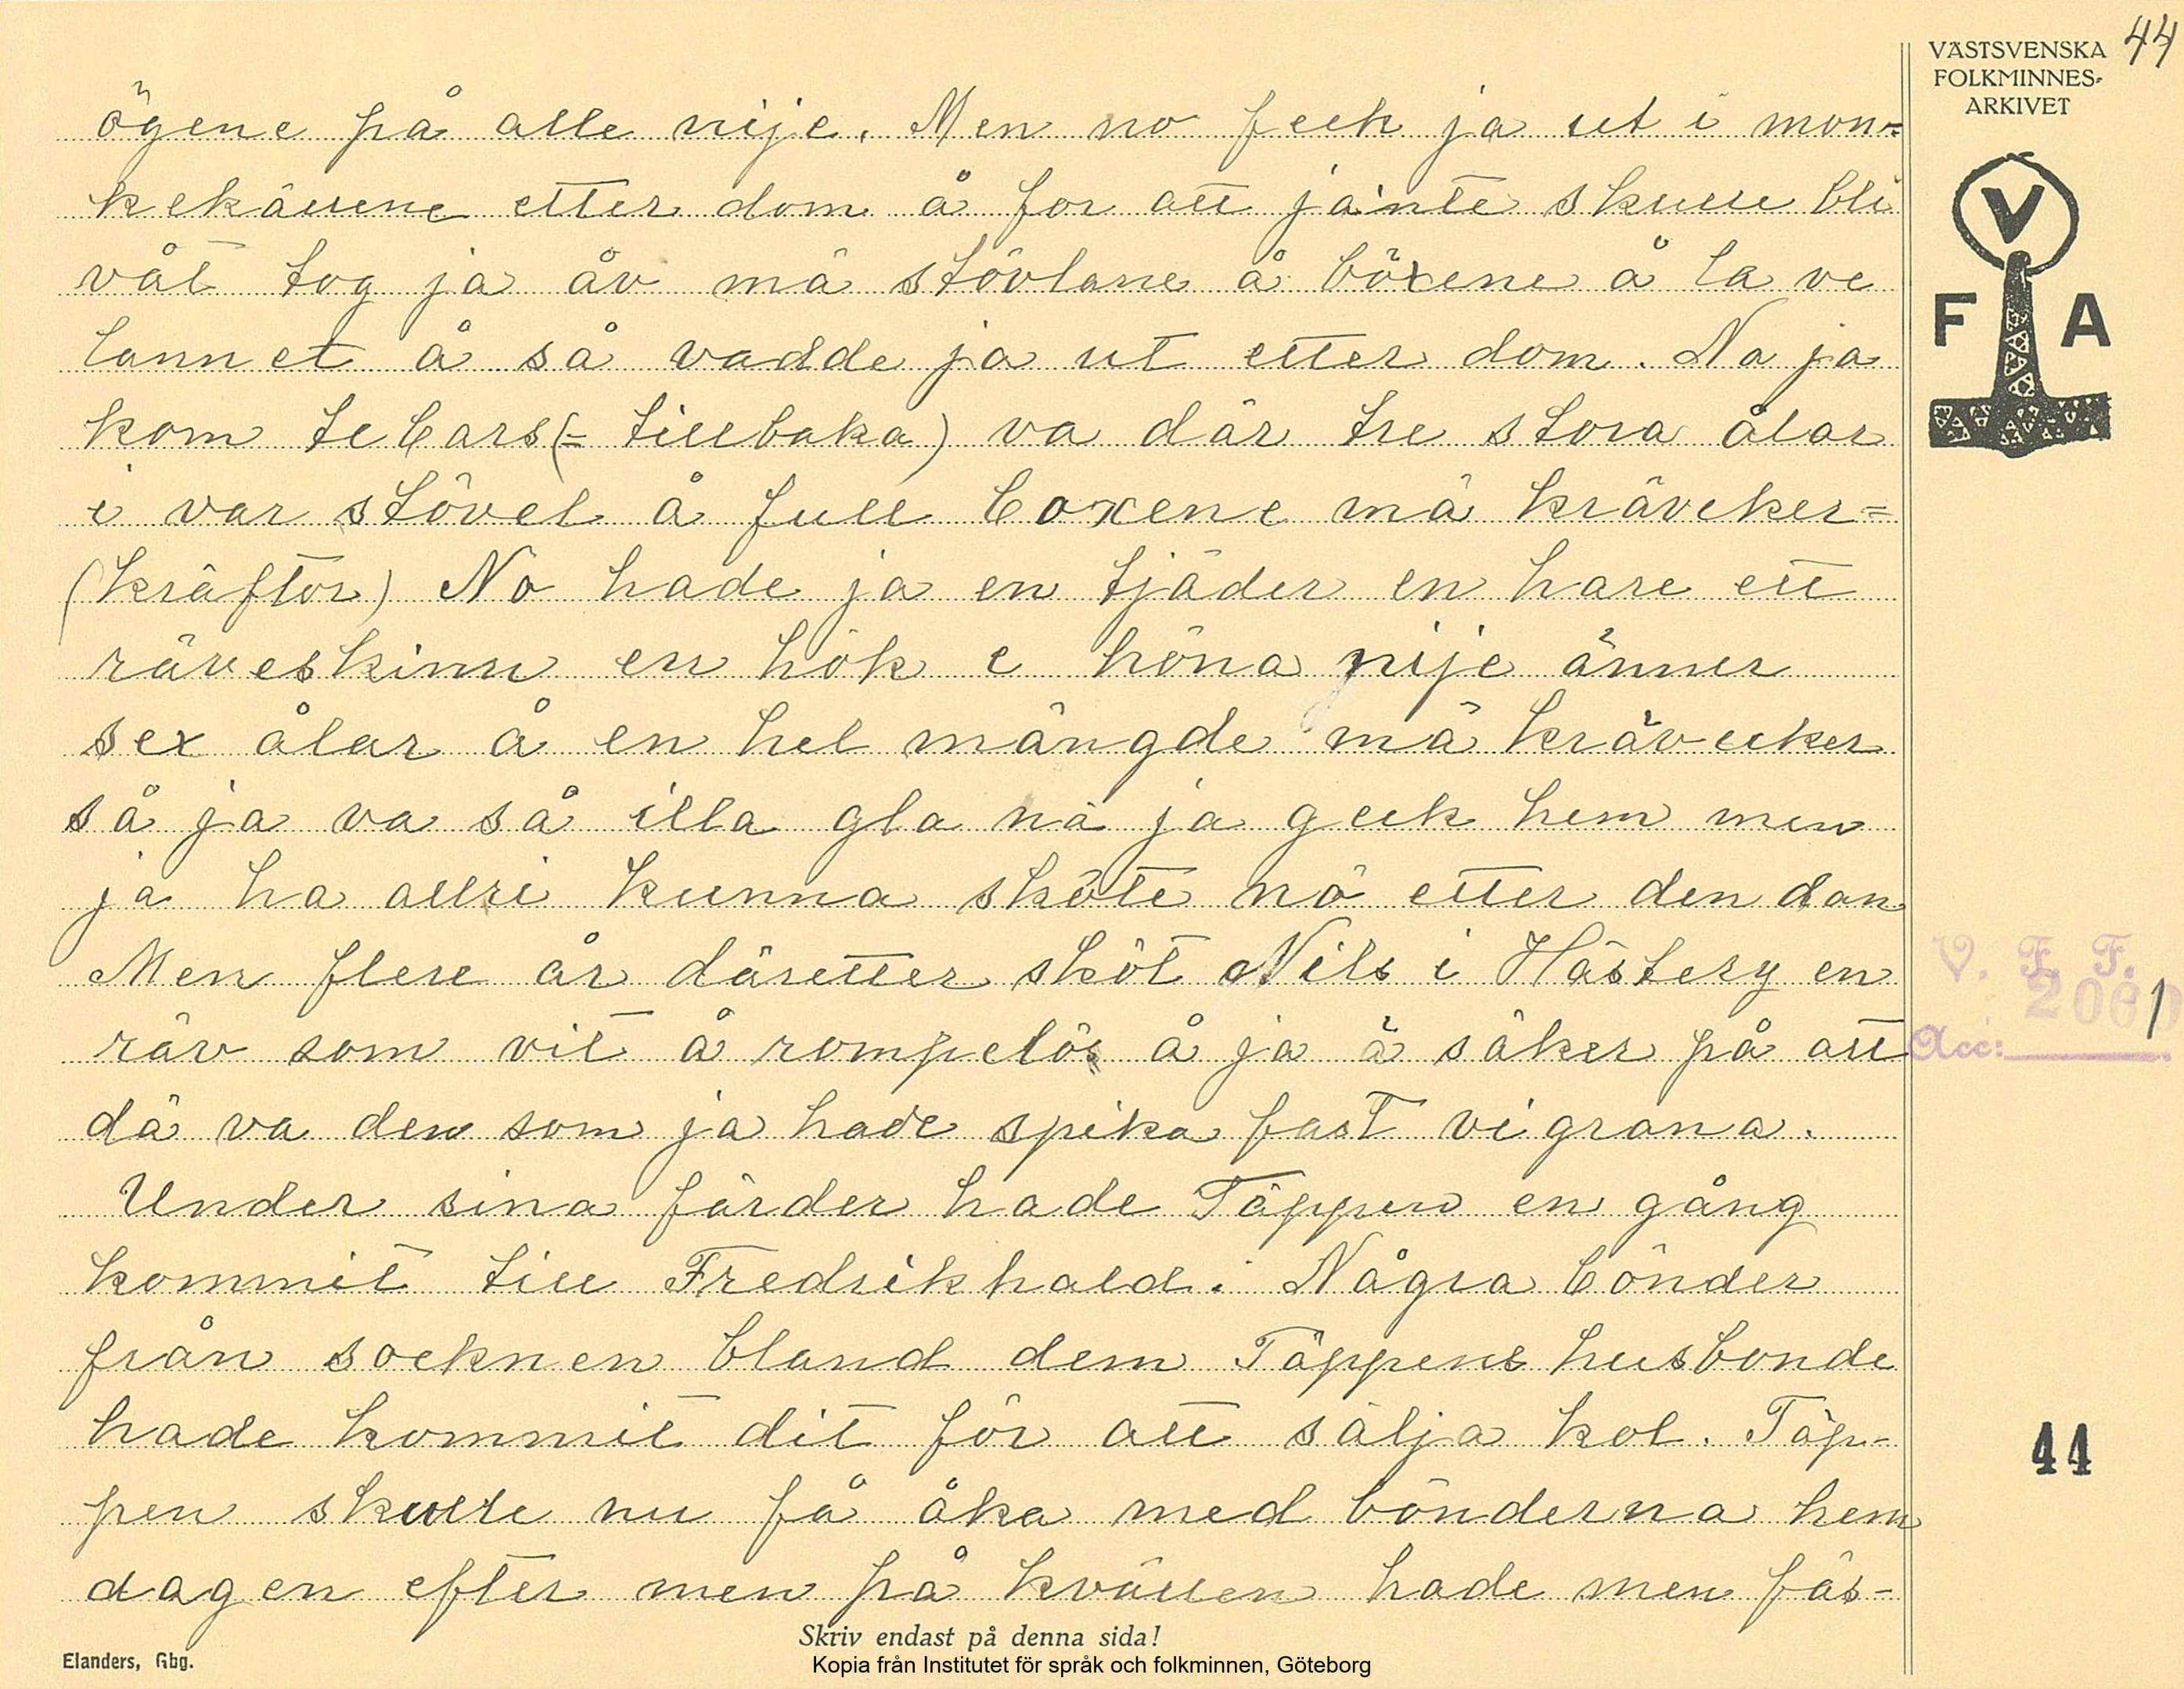 44
VÄSTSVENSKA
FOLKMINNES-
ARKIVET
V
F A
ögene på alle nije. Men no feck ja ut i mon-
kekällene etter dom å for att ja inte skulle bli
våt tog ja åv mä stövlane å böxene å la ve
lannet å så vadde ja ut etter dom. Na ja
kom te bars (= tillbaka) va där tre stora ålar
i var stövel å full boxene mä kräveker=
(kräftor) No hade ja en tjäder en hare ett
räveskinn en hök e höna nije änner
sex ålar å en hel mängde mä kräveker
så ja va så illa gla nä ja geck hem men
ja ha allri kunna sköte nö etter den dan
Men flere år däretter sköt Nils i Hästery en
räv som vit å rompelös å ja ä säker på att
dä va den som ja hade spika fast vi grana.
Under sina färder hade Täppen en gång
kommit till Fredrikhald. Några bönder
från socknen bland dem Täppens husbonde
hade kommit dit för att sälja kol. Täp-
pen skulle nu få åka med bönderna hem
dagen efter men på kvällen hade men fäs-
V. F. F.
Acc:
44
Skriv endast på denna sida!
Elanders, Gbg.
Kopia från Institutet för språk och folkminnen, Göteborg